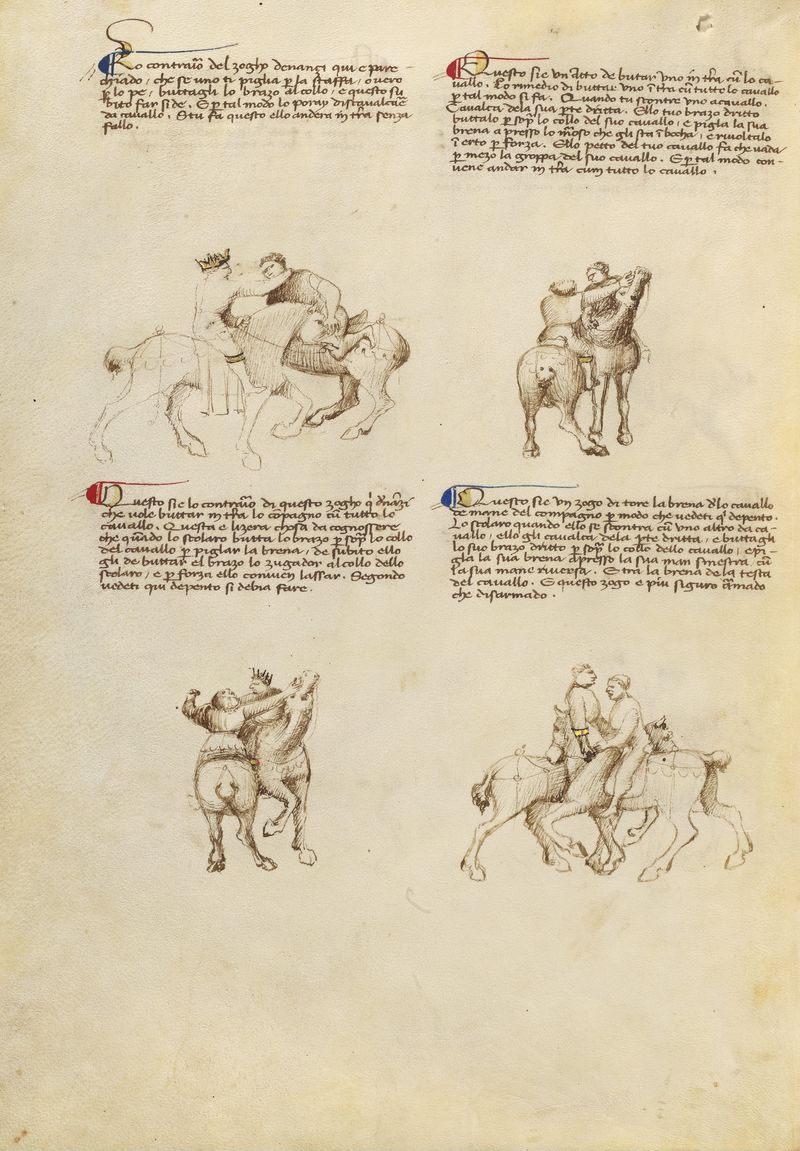 Lo contraio del zogho denançi qui e pare-
chiado, che se uno ti piglia per la staffa, overo
per lo pe, buttagli lo brazo al collo, e questo su-
bito far si de. E per tal modo lo poray discavalcare
da cavallo. E tu fa questo ello andera in terra senza
fallo.
Questo sie un atto de butar uno in terra cum lo ca-
vallo. Lo rimedio di buttar uno in terra cum tutto lo cavallo
per tal modo si fa. Quando tu scontre uno a cavallo.
Cavalca dela sua parte dritta. E lo tuo brazo dritto
buttalo per sopra lo collo del suo cavallo, e pigla la sua
brena apresso lo morso che gli sta in bocha, e rivoltalo
in erto per forza. E lo petto del tuo cavallo fa che vada
per mezo la groppa del suo cavallo. E per tal modo con-
vene andar in terra cum tutto lo cavallo.
Questo sie lo contraio di questo zogho qui denanzi
che vole buttar in terra lo compagno cum tutto lo
cavallo. Questa e lizera chosa da cognossere
che quando lo scolaro butta lo brazo per sopra lo collo
del cavallo per piglar la brena, de subito ello
gli de buttar el brazo lo zugador al collo dello
scolaro, e per forza ello convien lassar. Segondo
vedeti qui depento si debia fare.
Questo sie un zogo di tore la brena dello cavallo
de mane del compagno per modo che vedeti qui depento.
Lo scolaro quando ello se scontra cum uno altro da ca-
vallo, ello gli cavalca dela parte dritta, e buttagli
lo suo brazo dritto per sopra lo collo dello cavallo, e pi-
gla la sua brena apresso la sua man sinestra cum
la sua mane riversa. E tra la brena dela testa
del cavallo. E questo zogo e più siguro armado
che disarmado.